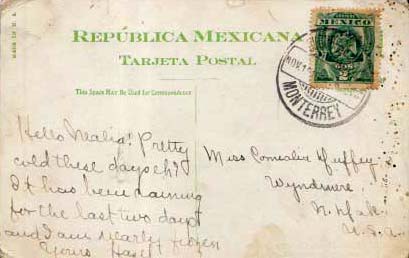 MADE IN U.S.A.
REPÚBLICA MEXICANA
TARJETA POSTAL
This Space May Be Used for Correspondence
MEXICO
2
NOV 1
MONTERREY
Hello Malia! Pretty
cold these days eh?
It has been raining
for the last two days
and I am nearly frozen
Yours Hazel
Miss Cornealia Guffey
Wyndmere
N. Dak.
U.S.A.